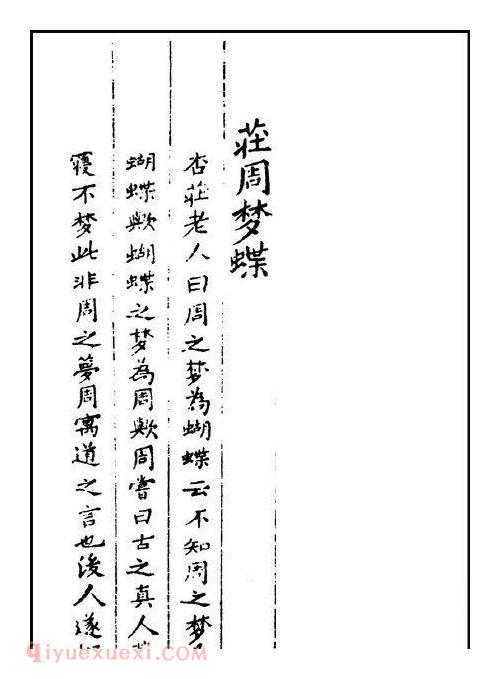 莊周梦蝶
杏莊老人曰周之梦為蝴蝶云不知周之梦
蝴蝶歟蝴蝶之梦為周歟周嘗曰古之真人
寝不梦此非周之夢周寓道之言也後人遂
qiyuexuexi.com